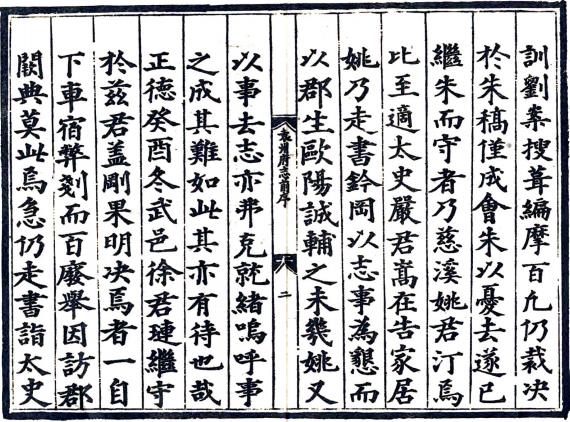 訓劉案搜葺編摩百九仍裁决
於朱稿僅成會朱以憂去遂已
繼朱而守者乃慈溪姚君汀焉
比至適太史嚴君嵩在告家居
姚乃走書鈐岡以志事為懇而
以郡生歐陽誠輔之未幾姚又
袁州府志前序
二
以事去志亦弗克就緒嗚呼事
之成其難如此其亦有待也哉
正德癸酉冬武邑徐君璉繼守
於兹君盖剛果明决焉者一自
下車宿弊剗而百廢舉因訪郡
闕典莫此焉急仍走書詣太史